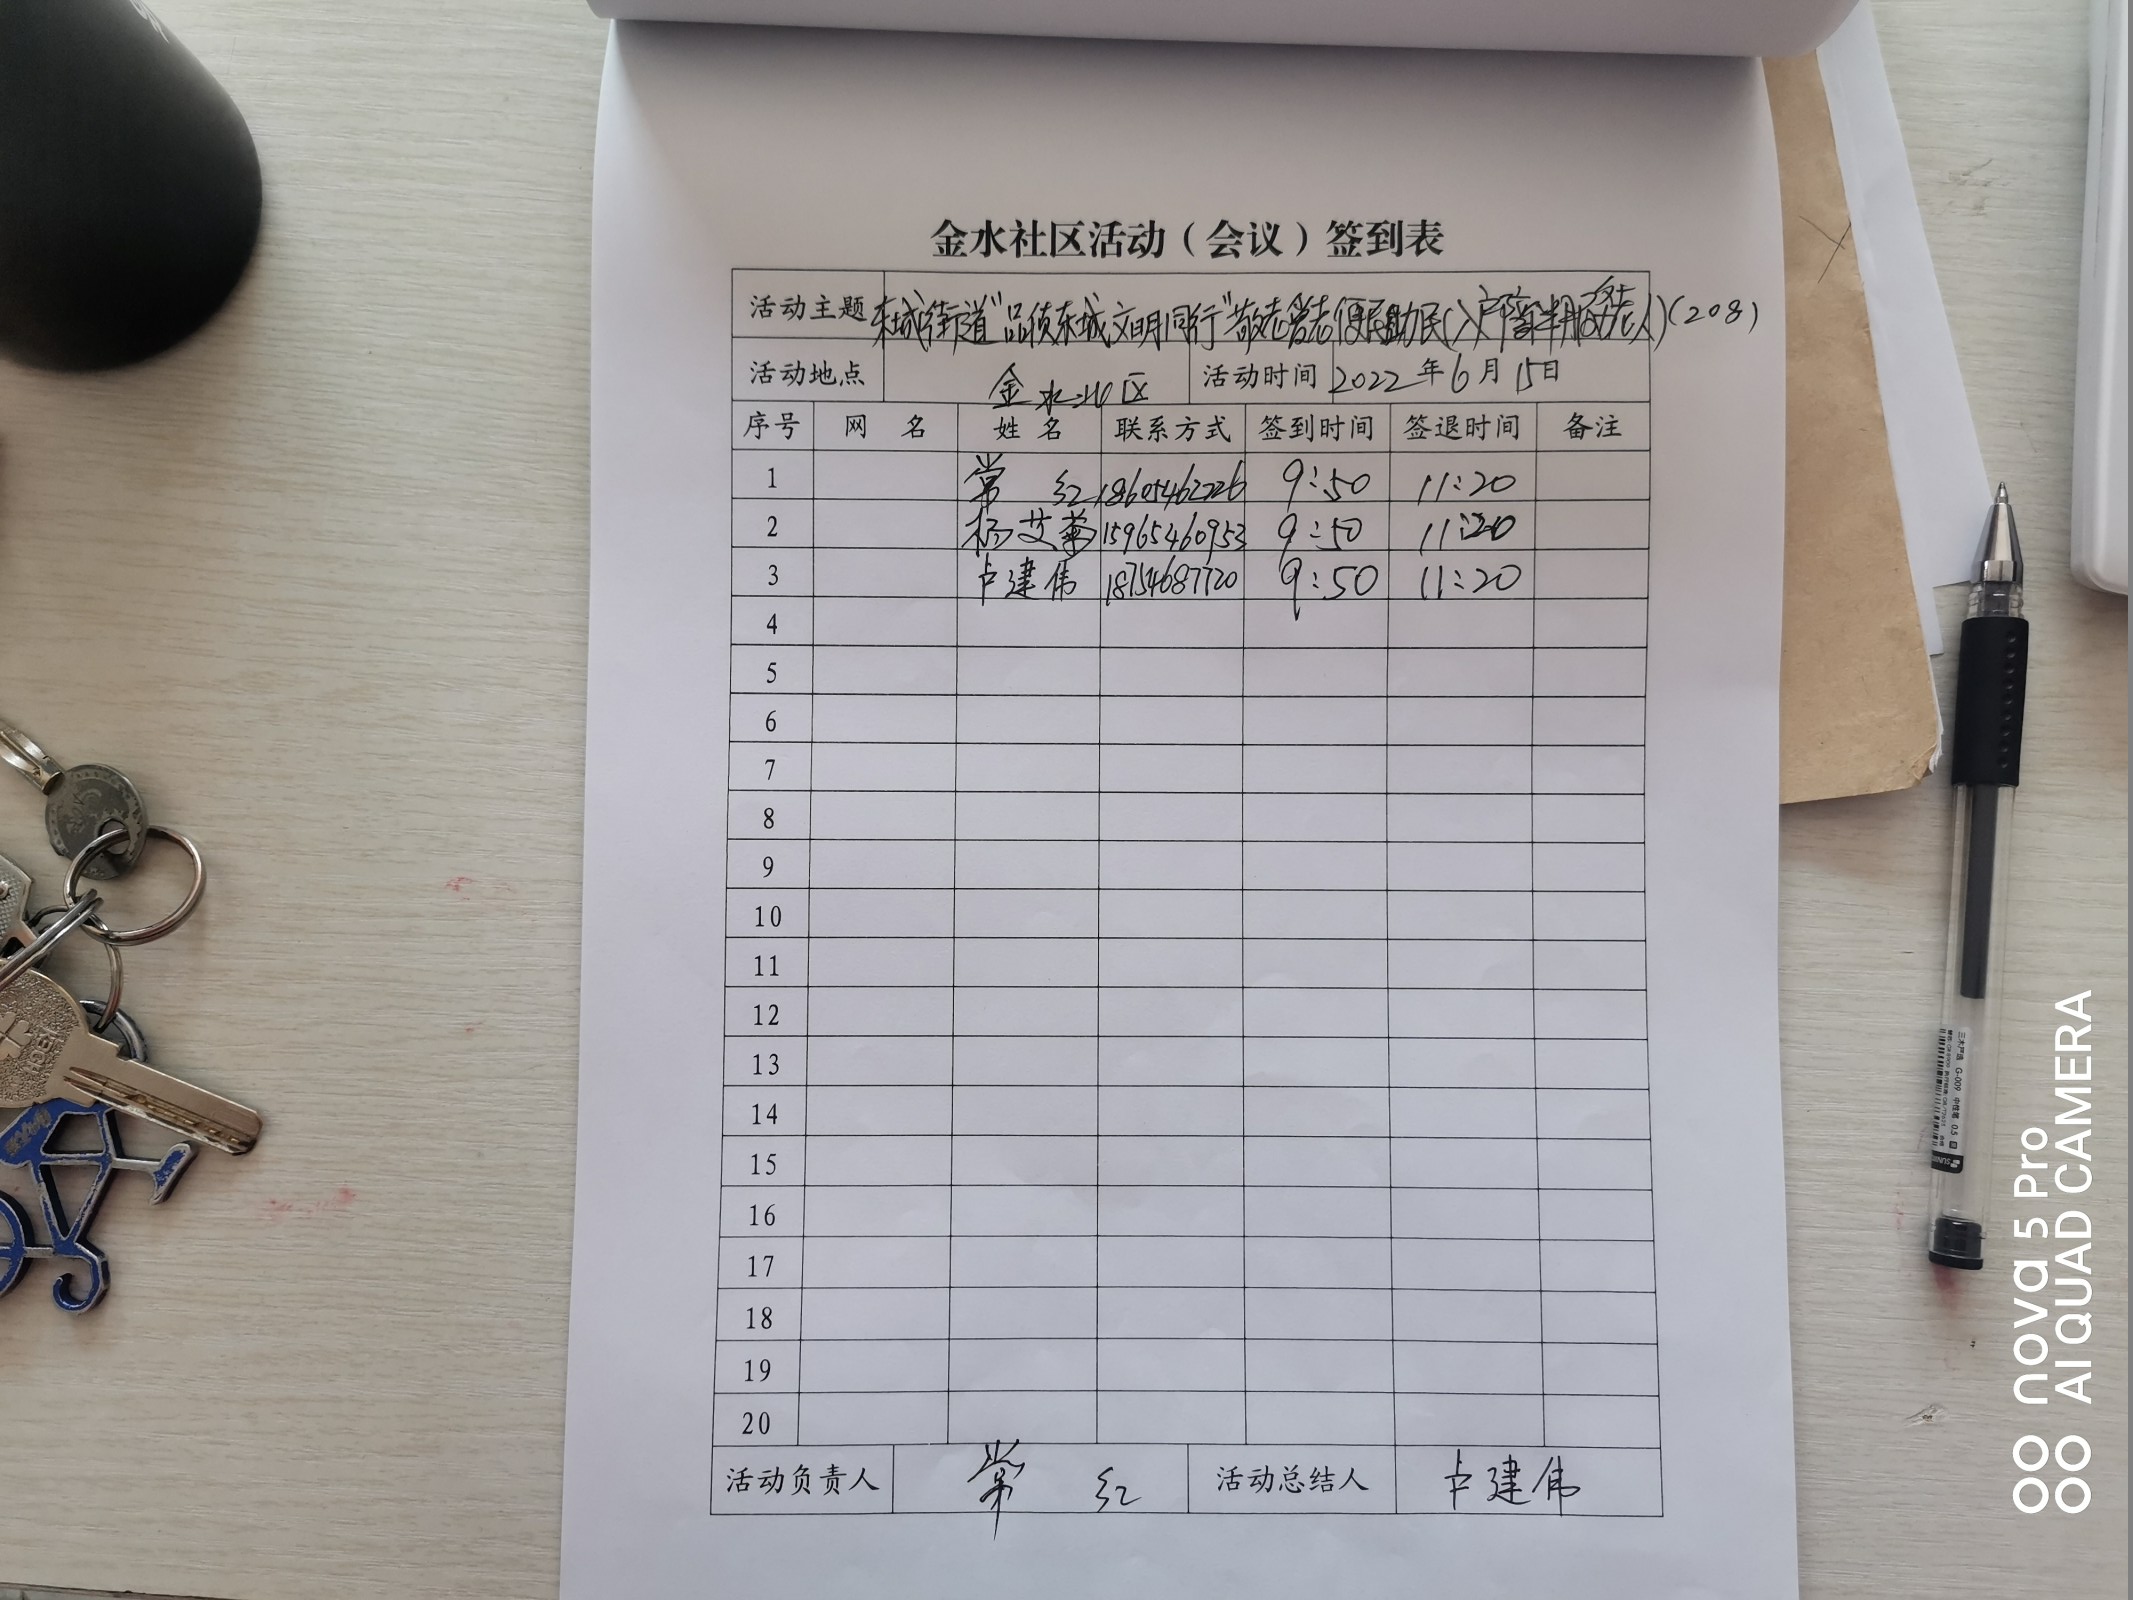 金水社区活动（会议）签到表
活动主题 东城街道"品质东城 文明同行"敬老爱老 便民助民(入户 老人)(208)
活动地点 金水社区 活动时间 2022年6月15日
序号 网 名 姓 名 联系方式 签到时间 签退时间 备注
1 常 红 18605462226 9:50 11:20
2 杨艾 15965460953 9:50 11:20
3 卢建伟 18754687720 9:50 11:20
4
5
6
7
8
9
10
11
12
13
14
15
16
17
18
19
20
活动负责人 常 红 活动总结人 卢建伟
三木严选 G-009 中性笔 0.5
nova 5 Pro
AI QUAD CAMERA